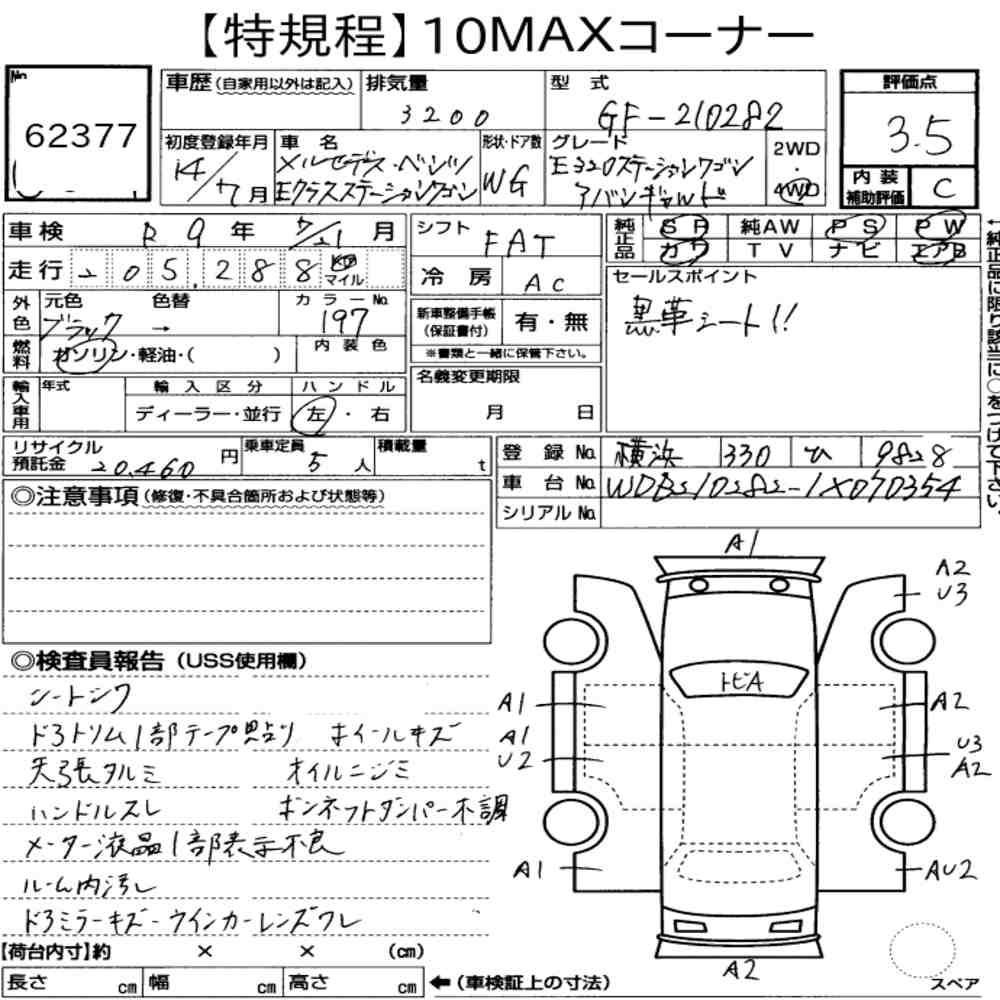 【特規程】10MAXコーナー
No. 62377
車歴(自家用以外は記入)
排気量 3200
型式 GF-210282
初度登録年月 14/7月
車名 メルセデス・ベンツ Eクラスステーションワゴン
形状・ドア数 WG
グレード E320ステーションワゴン アバンギャルド
2WD・4WD
評価点 3.5
内装補助評価 C
車検 R9年 7/21月
走行 205,288 km マイル
外色 元色 ブラック 色替 → カラーNo. 197
燃料 ガソリン・軽油・( ) 内装色
輸入車用 年式 輸入区分 ディーラー・並行 ハンドル 左・右
シフト FAT
冷房 AC
新車整備手帳(保証書付) 有・無
※書類と一緒に保管下さい。
名義変更期限 月 日
純正品 SR 純AW PS PW
カワ TV ナビ エアB
←純正品に限り該当に○をつけて下さい。
セールスポイント
黒革シート!!
リサイクル預託金 20,460円
乗車定員 5人
積載量 t
登録No. 横浜 330 ひ 9828
車台No. WDB210282-1X070354
シリアルNo.
◎注意事項(修復・不具合箇所および状態等)
◎検査員報告(USS使用欄)
シートシワ
ドラトリム1部テープ貼り ホイールキズ
天張タルミ オイルニジミ
ハンドルスレ ボンネットダンパー不調
メーター液晶1部表示不良
ルーム内汚レ
ドラミラーキズ-ウインカーレンズワレ
A1
A2
U3
トビA
A1
A2
A1
U2
U3
A2
A1
AU2
A2
スペア
【荷台内寸】約 × × (cm)
長さ cm 幅 cm 高さ cm
←(車検証上の寸法)